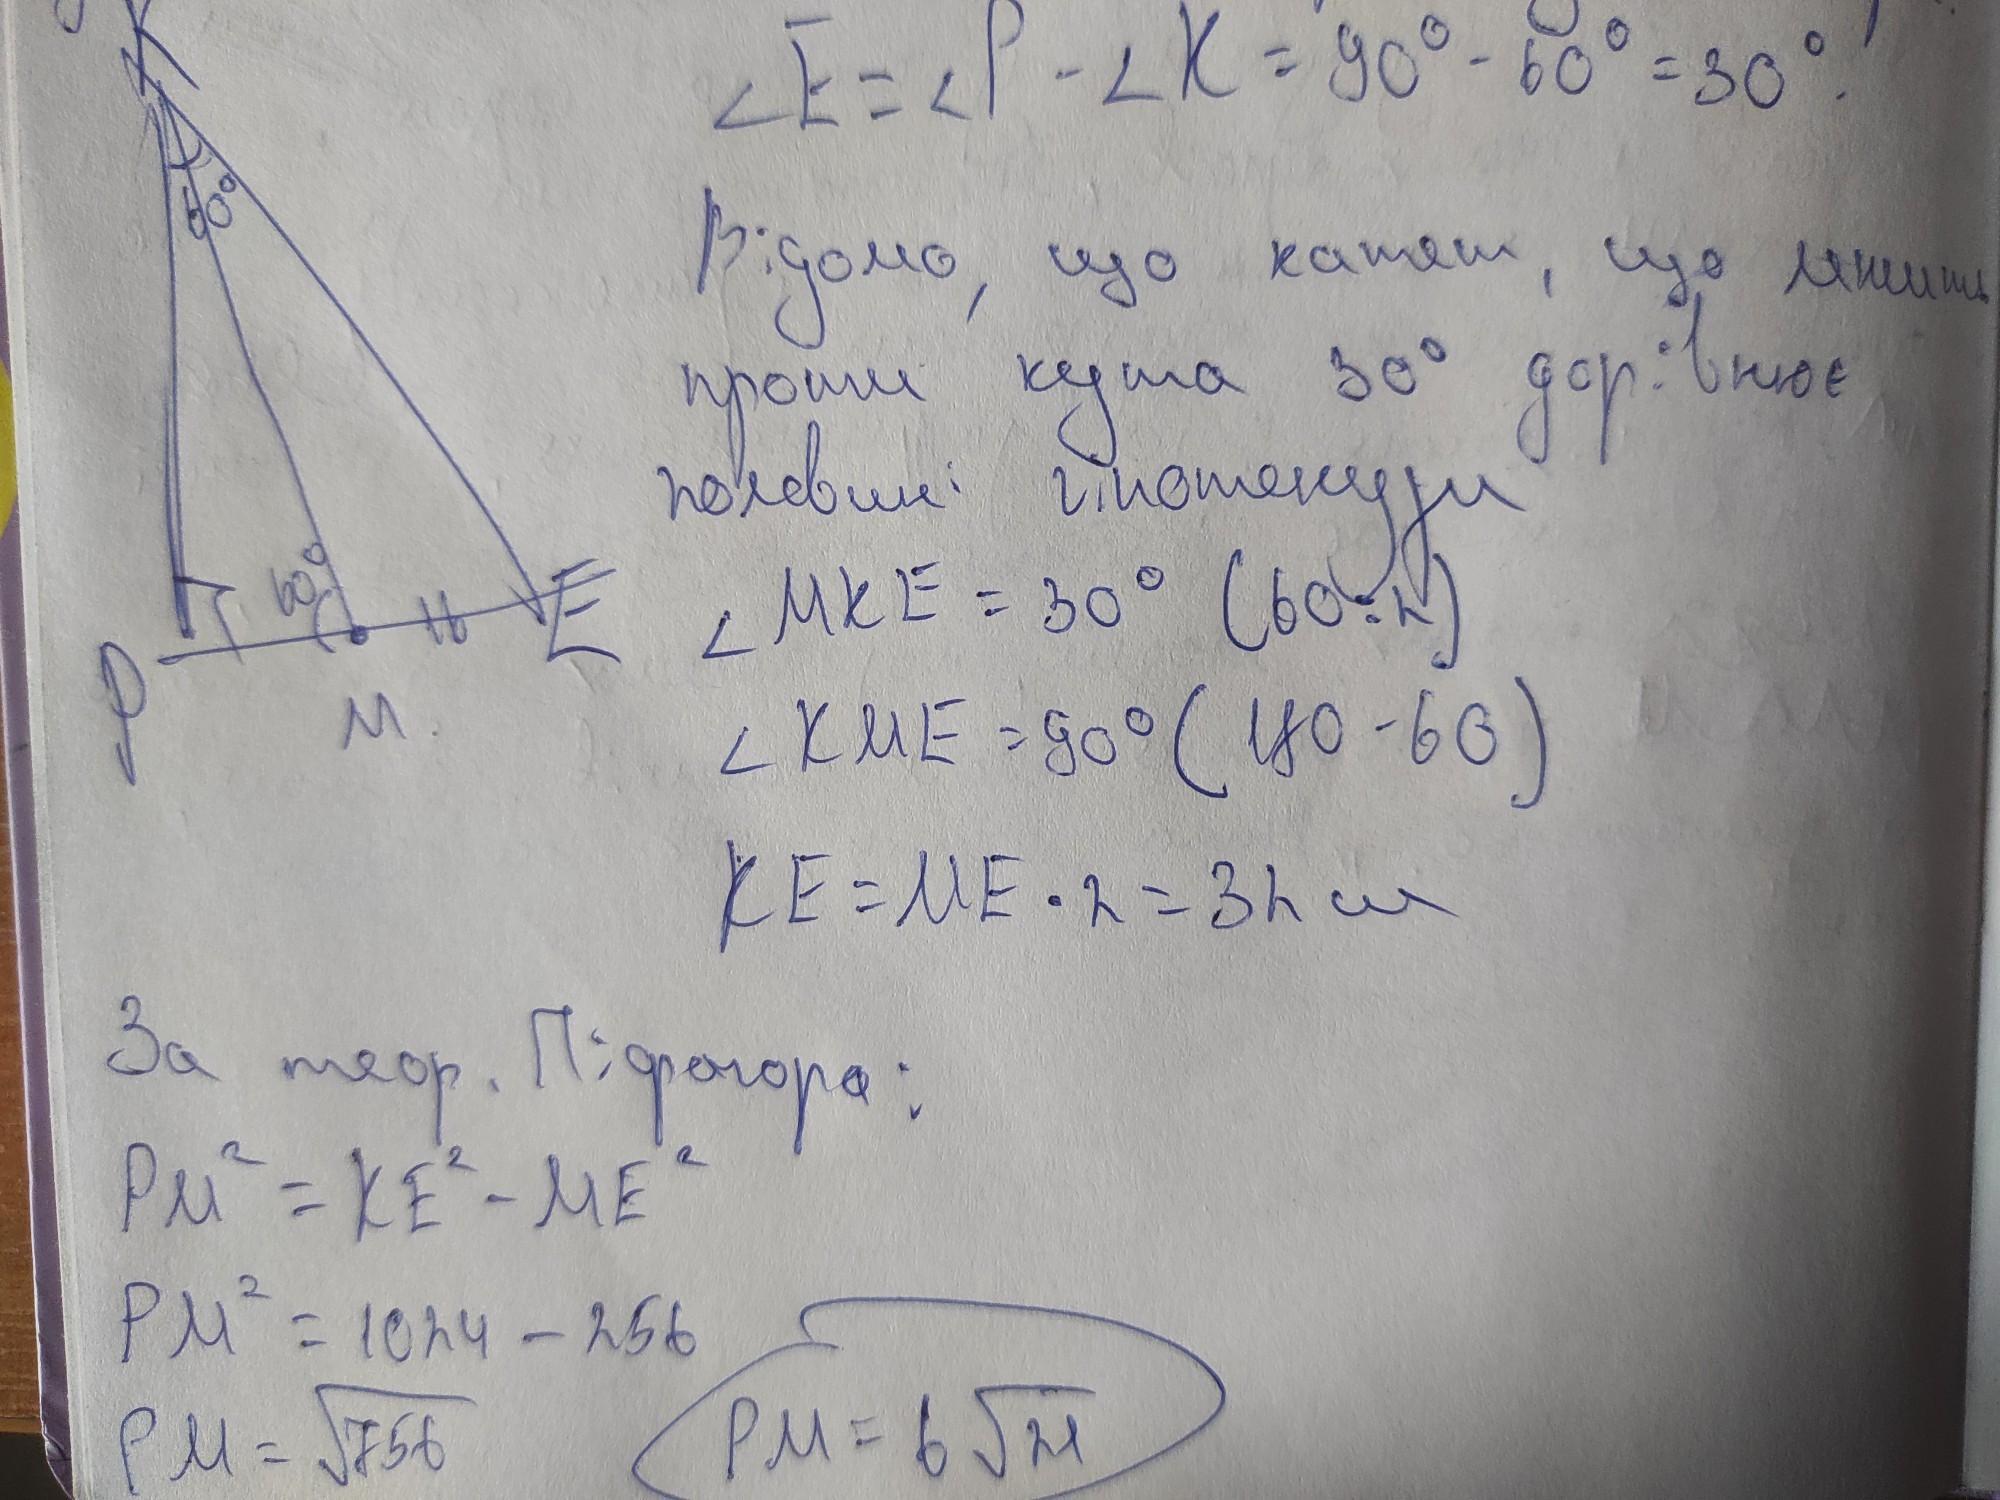 K
∠E = ∠P - ∠K = 90° - 60° = 30°.
60°
Відомо, що катет, що лежить
проти кута 30° дорівнює
половині гіпотенузи
60°
16
P
E
M
∠MKE = 30° (60:2)
∠KME = 90° (180 - 60)
KE = ME · 2 = 32 см
За теор. Піфагора:
PM² = KE² - ME²
PM² = 1024 - 256
PM = √756
PM = 6√21